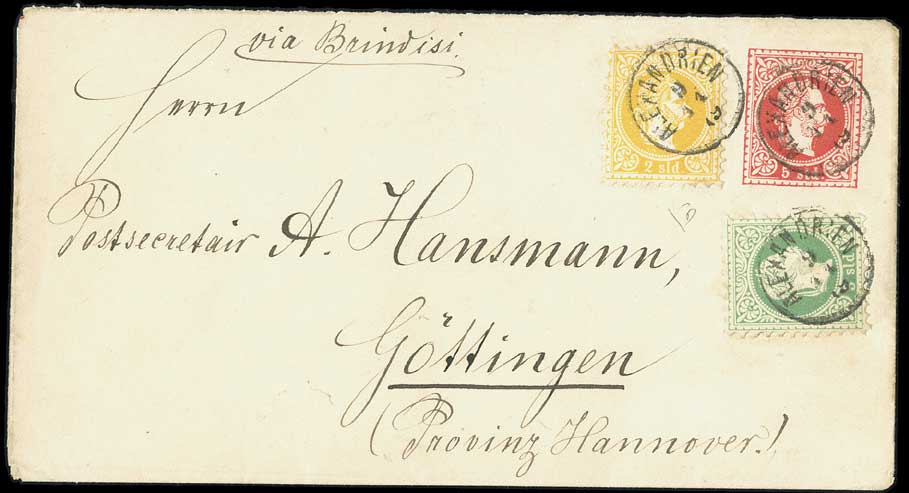 via Brindisi
Herrn
Postsecretair A. Hansmann,
Göttingen
(Provinz Hannover.)
ALEXANDRIEN
2 sld
ALEXANDRIEN
5 sld
ALEXANDRIEN